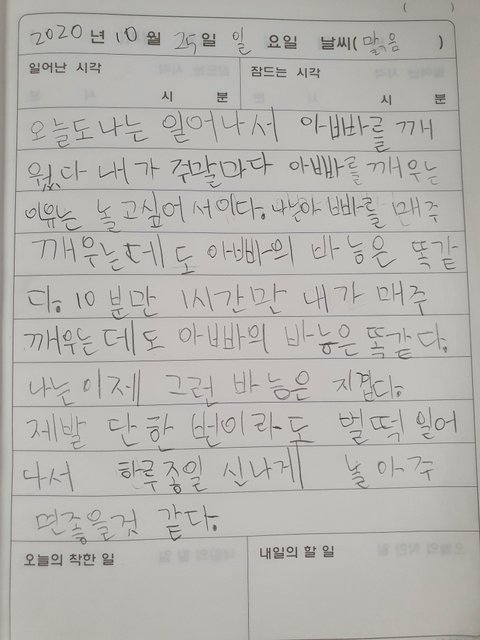 (          )
2020 년 10 월 25 일 일 요일 날씨( 맑음 )
일어난 시각 잠드는 시각
시 분 시 분
오늘도 나는 일어나서 아빠를 깨
웠다 내가 주말마다 아빠를 깨우는
이유는 놀고싶어서이다. 나는 아빠를 매주
깨우는데도 아빠의 바능은 똑같
다. 10분만 1시간만 내가 매주
깨우는데도 아빠의 바능은 똑같다.
나는 이제 그런 바능은 지겹다.
제발 단 한 번이라도 벌떡 일어
나서 하루종일 신나게 놀아주
면좋을것 같다.
오늘의 착한 일 내일의 할 일